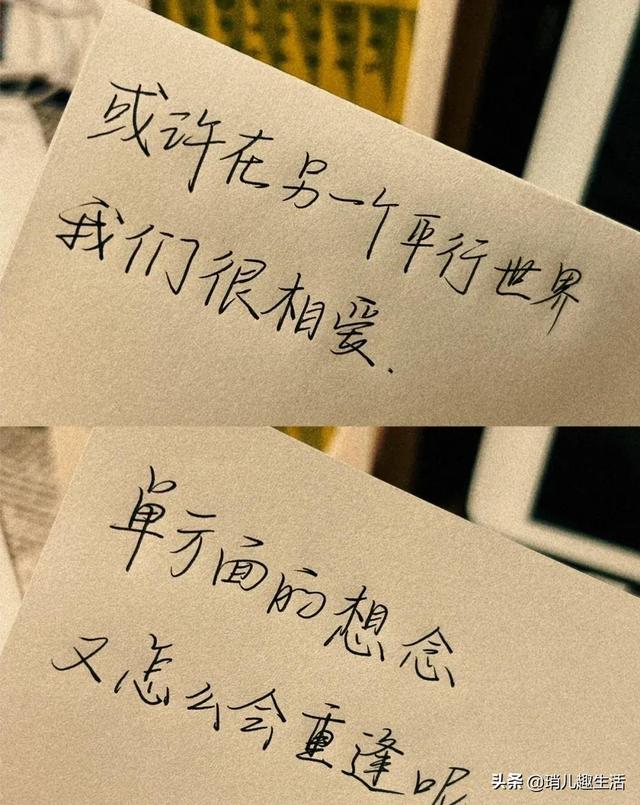 或许在另一个平行世界
我们很相爱.
单方面的想念
又怎么会重逢呢
头条 @琑儿趣生活